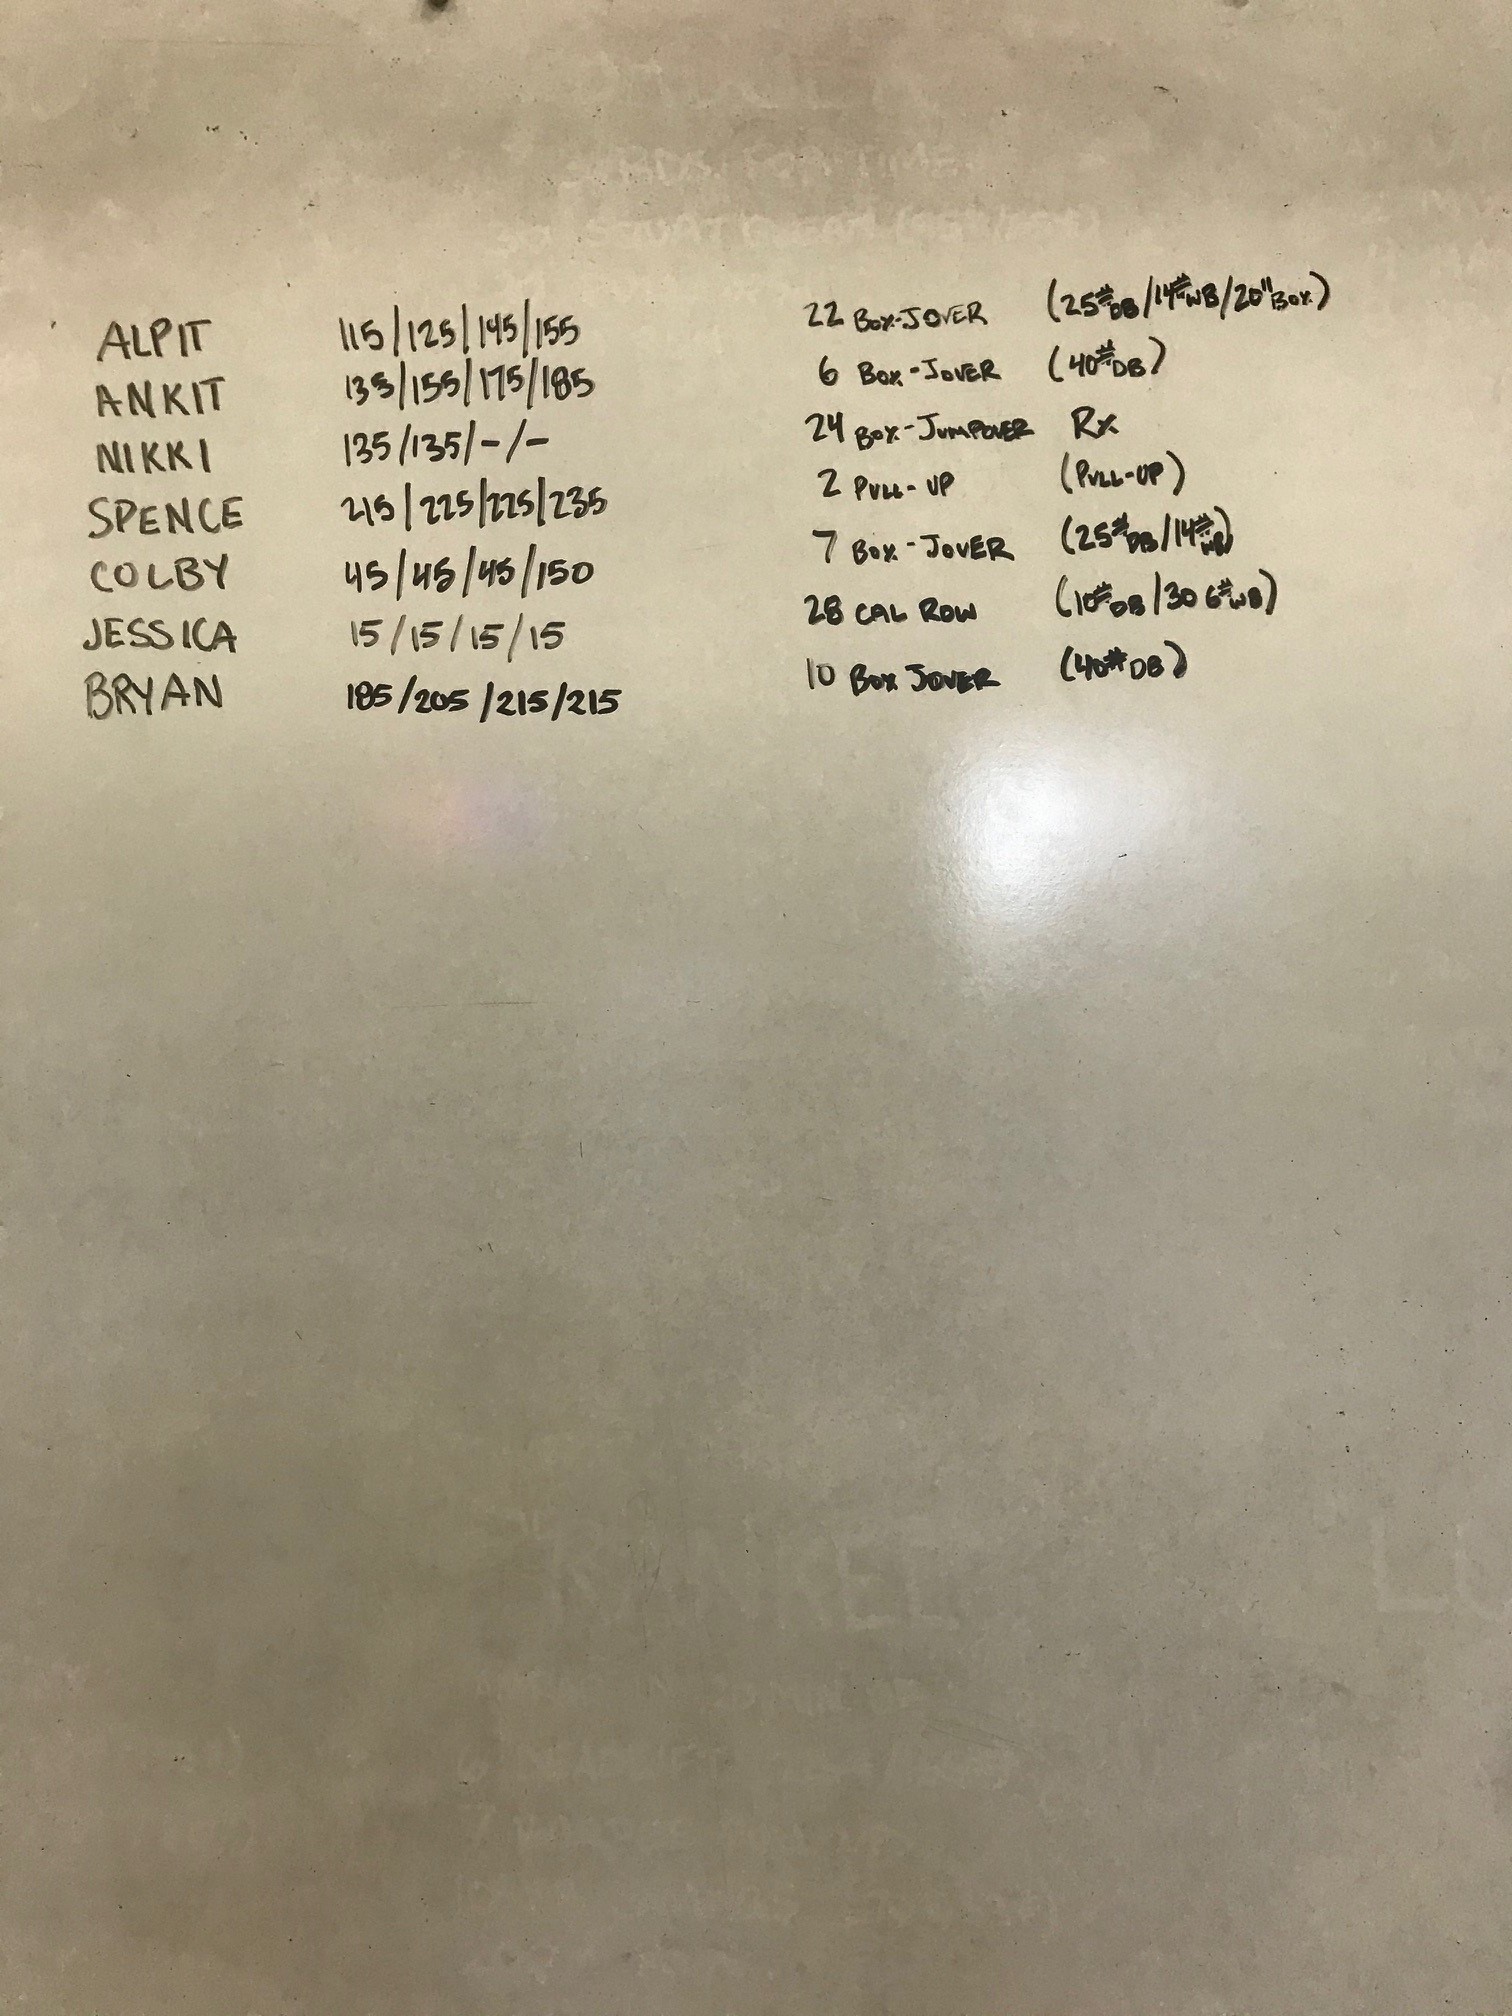 ALPIT 115/125/145/155 22 BOX-JOVER (25#DB/14#WB/20"BOX)
ANKIT 135/155/175/185 6 BOX-JOVER (40#DB)
NIKKI 135/135/-/- 24 BOX-JUMPOVER Rx
SPENCE 215/225/225/235 2 PULL-UP (PULL-UP)
COLBY 45/45/45/150 7 BOX-JOVER (25#DB/14#WB)
JESSICA 15/15/15/15 28 CAL ROW (10#DB/30 6#WB)
BRYAN 185/205/215/215 10 BOX JOVER (40#DB)